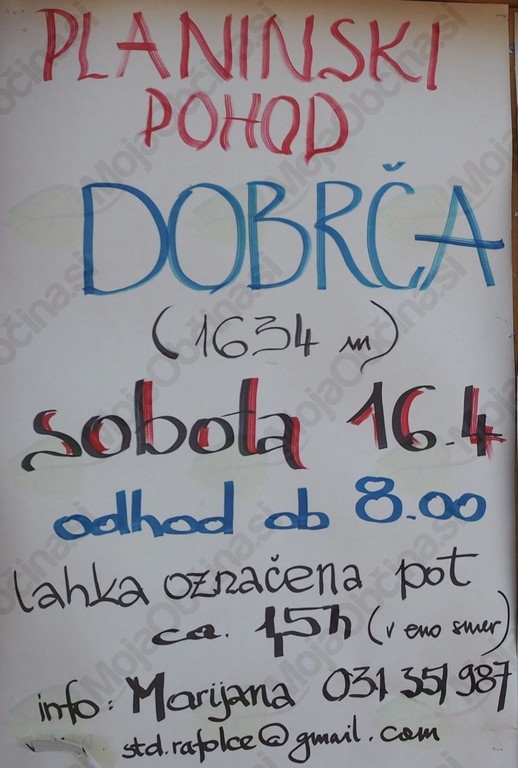 PLANINSKI
POHOD
DOBRČA
(1634 m)
sobota 16.4
odhod ob 8.00
lahka označena pot
ca. 1,5h (v eno smer)
info: Marijana 031 351 987
std.rafolce@gmail.com
MojaObčina.si